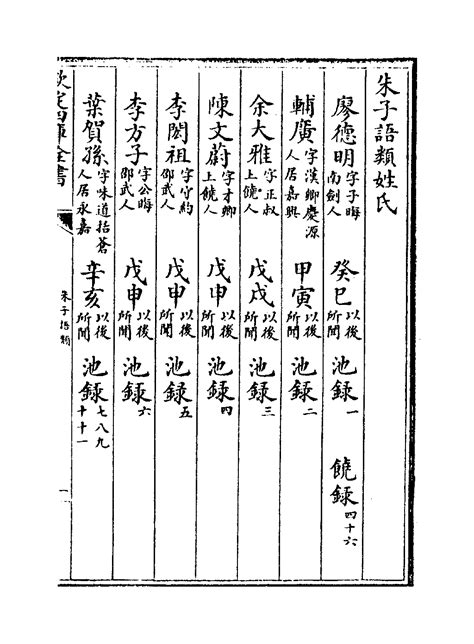 朱子語類姓氏
廖德明字子晦南劍人 癸巳以後所聞 池録一 饒録四十六
輔廣字漢卿慶源人居嘉興 甲寅以後所聞 池録二
余大雅字正叔上饒人 戊戌以後所聞 池録三
陳文蔚字才卿上饒人 戊申以後所聞 池録四
李閎祖字守約邵武人 戊申以後所聞 池録五
李方子字公晦邵武人 戊申以後所聞 池録六
葉賀孫字味道括蒼人居永嘉 辛亥以後所聞 池録七八九十十一
欽定四庫全書 朱子語類 一